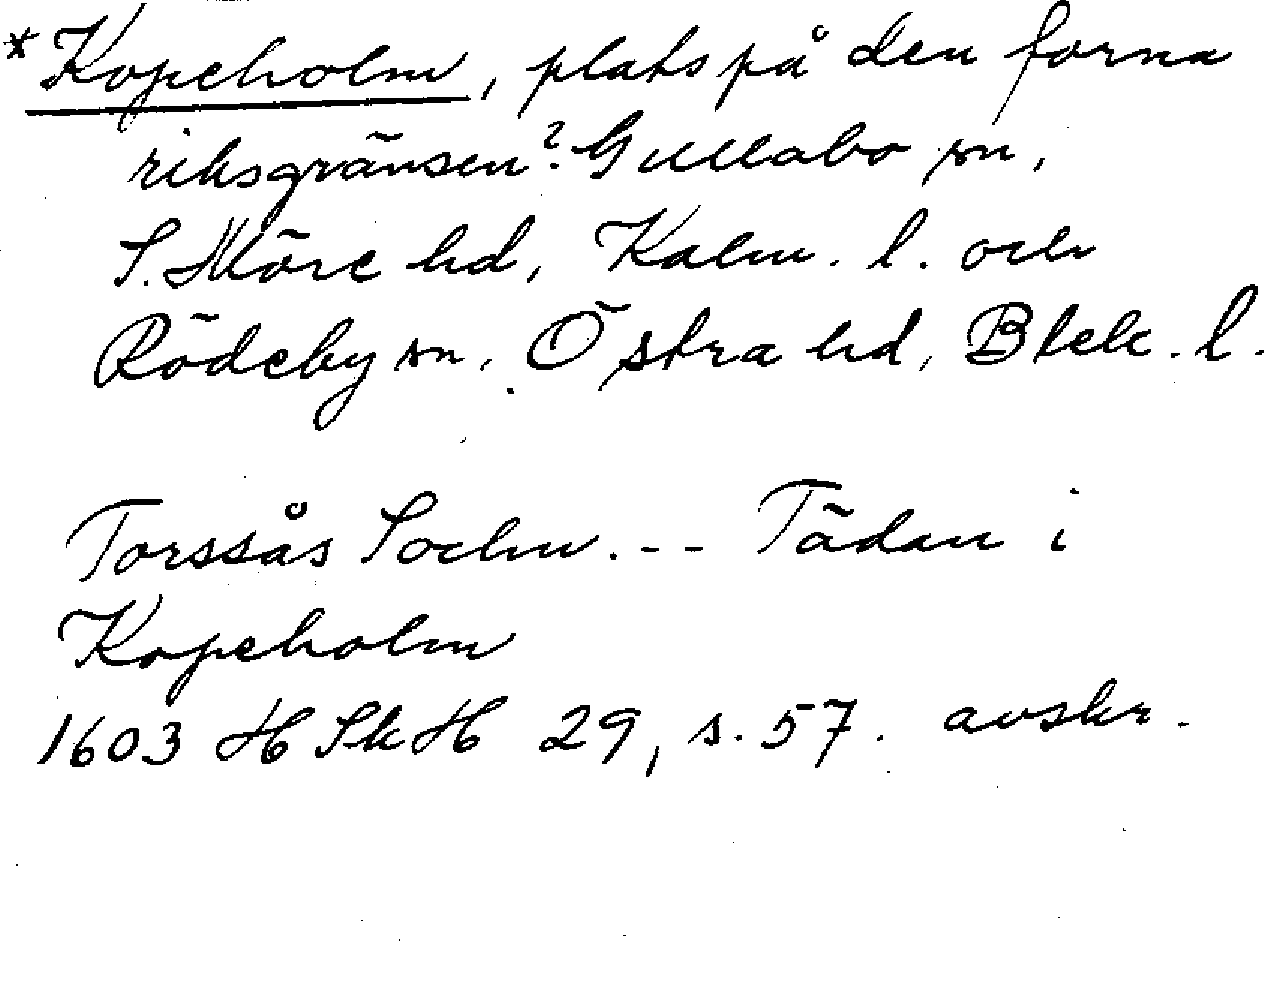 *Kopeholm, plats på den forna
riksgränsen? Gullabo sn,
S. Möre hd, Kalm. l. och
Rödeby sn, Östra hd, Blek. l.
Torssås Sochn. -- Tädan i
Kopeholm
1603 HSkH 29, s. 57. avskr.